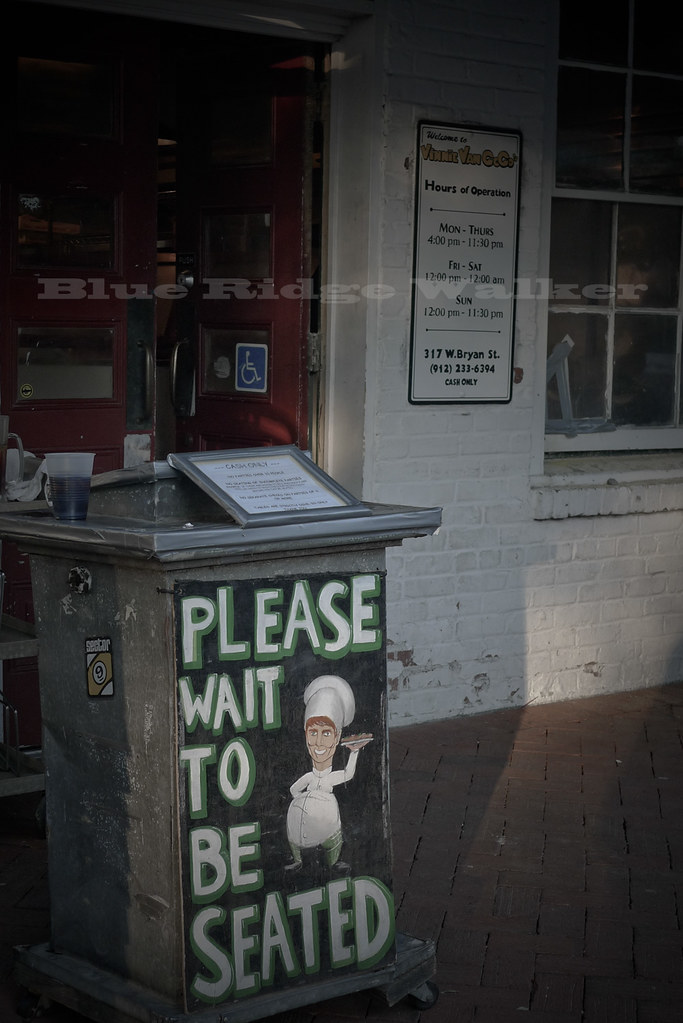 Welcome to
Vinnie Van GoGo's
Hours of Operation
Mon - Thurs
4:00 pm - 11:30 pm
Fri - Sat
12:00 pm - 12:00 am
Sun
12:00 pm - 11:30 pm
317 W. Bryan St.
(912) 233-6394
CASH ONLY
Blue Ridge Walker
CASH ONLY
sector
9
PLEASE
WAIT
TO
BE
SEATED